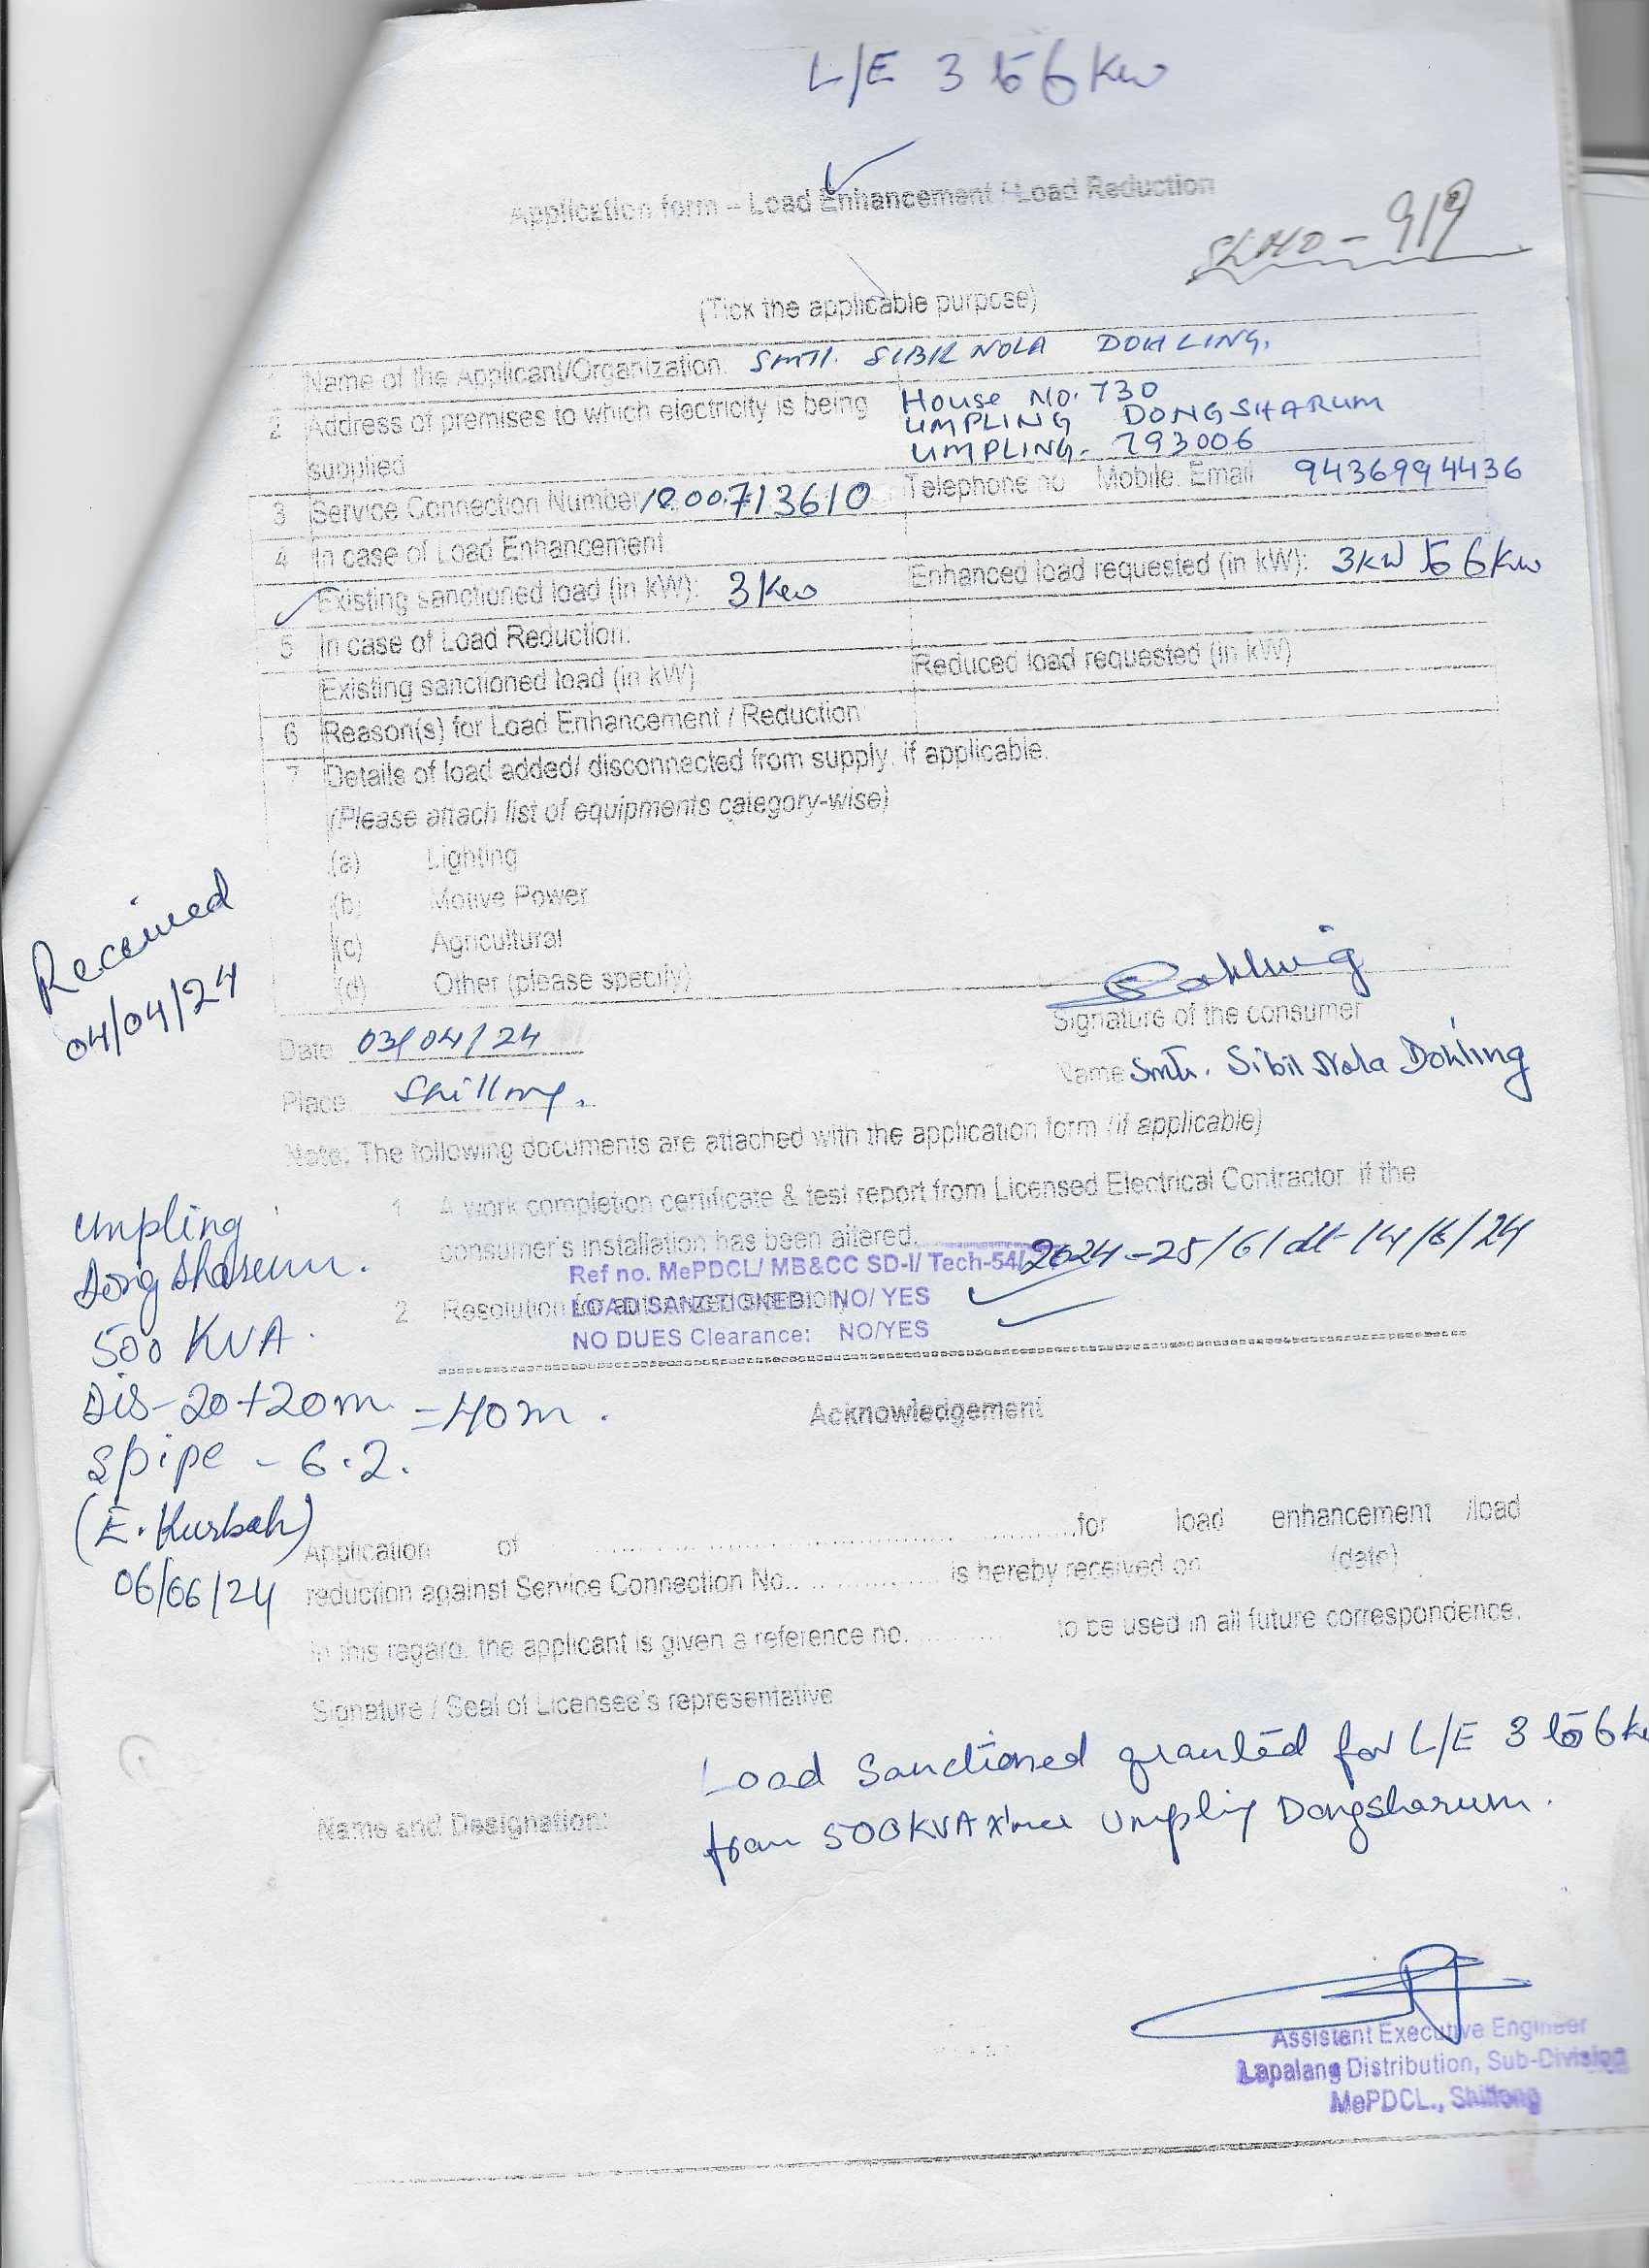 L/E 3 to 6 Kw
Application form – Load Enhancement / Load Reduction
Sl. No - 919
(Tick the applicable purpose)
1 Name of the Applicant/Organization. SMTI. SIBIL NOLA DOHLING.
2 Address of premises to which electricity is being supplied
House No. 730
UMPLING DONGSHARUM
UMPLING. 793006
3 Service Connection Number
Telephone no Mobile. Email 9436994436
4 In case of Load Enhancement
Existing sanctioned load (in kW): 3 Kw
Enhanced load requested (in kW): 3KW to 6 Kw
5 In case of Load Reduction.
Existing sanctioned load (in kW)
Reduced load requested (in kW)
6 Reason(s) for Load Enhancement / Reduction
7 Details of load added/ disconnected from supply, if applicable.
(Please attach list of equipments category-wise)
(a) Lighting
(b) Motive Power
(c) Agricultural
(d) Other (please specify)
Received
04/04/24
Dohling
Signature of the consumer
Date 03/04/24
Name Smti. Sibil Nola Dohling
Place Shillong.
Note: The following documents are attached with the application form (if applicable)
1 A work completion certificate & test report from Licensed Electrical Contractor. if the
consumer's installation has been altered.
Ref no. MePDCL/ MB&CC SD-I/ Tech-54/ 2024-25/6/ dt 14/6/24
2 Resolution for authorized signatory
LOAD SANCTIONED: NO/ YES
NO DUES Clearance: NO/YES
Umpling
Dongsharum.
500 KVA.
Dis - 20+20m = 40m.
Spipe - 6.2.
(E. Kurbah)
06/06/24
Acknowledgement
Application of ........ for load enhancement /load
reduction against Service Connection No.. ........ is hereby received on (date)
In this regard, the applicant is given a reference no. ........ to be used in all future correspondence.
Signature / Seal of Licensee's representative
Load Sanctioned granted for L/E 3 to 6 k
from 500KVA x'mer Umpling Dongsharum.
Name and Designation:
Assistant Executive Engineer
Lapalang Distribution, Sub-Division
MePDCL., Shillong